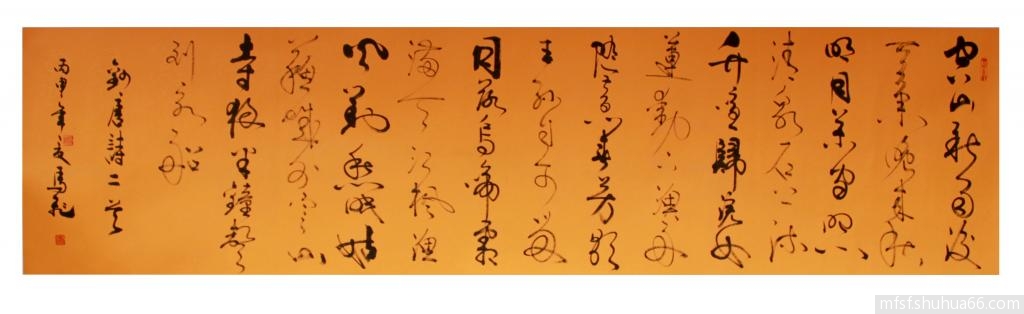 空山新雨後
天氣晚來秋
明月松間照
清泉石上流
竹喧歸浣女
蓮動下漁舟
隨意春芳歇
王孫自可留
月落烏啼霜
滿天江楓漁
火對愁眠姑
蘇城外寒山
寺夜半鐘聲
到客船
錄唐詩二首
丙申年
mfsf.shuhua66.com